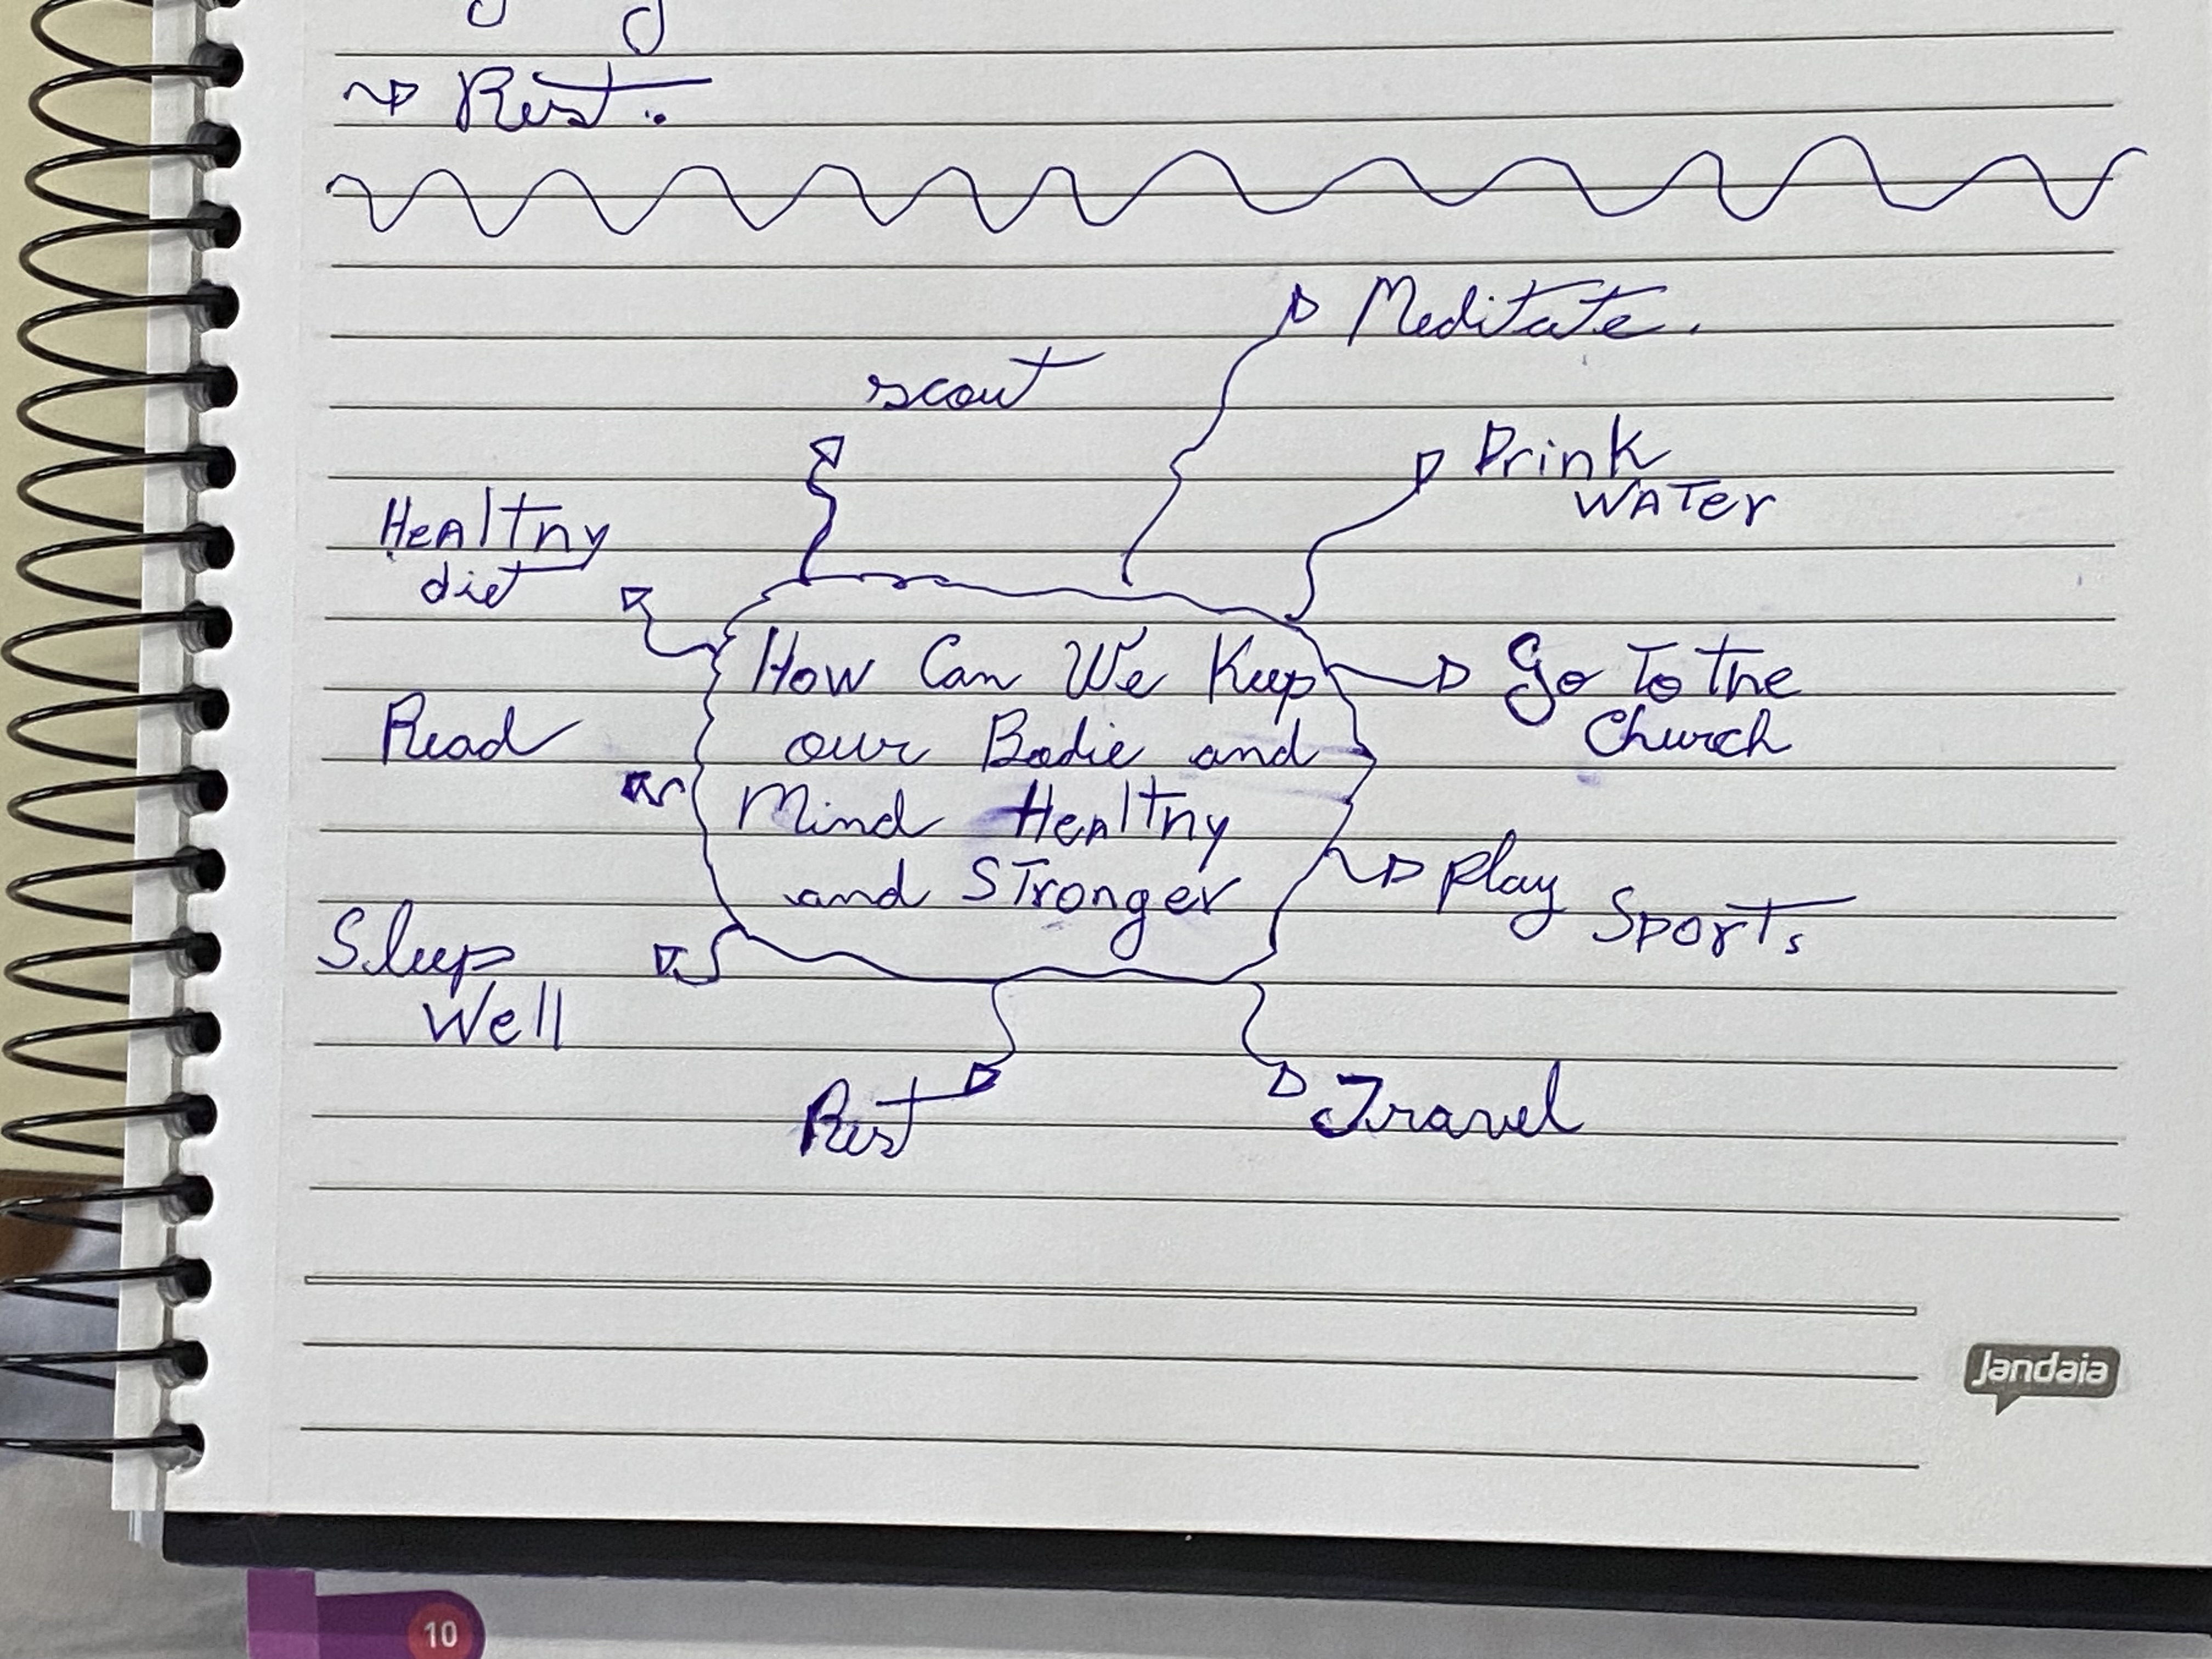 Rest.
Meditate.
scout
Drink
WATer
HeAlThy
diet
How Can We Keep
our Bodie and
Mind HeAlThy
and STronger
Go To The
Church
Read
Play
SporTs
Sleep
Well
Rest
Travel
Jandaia
10